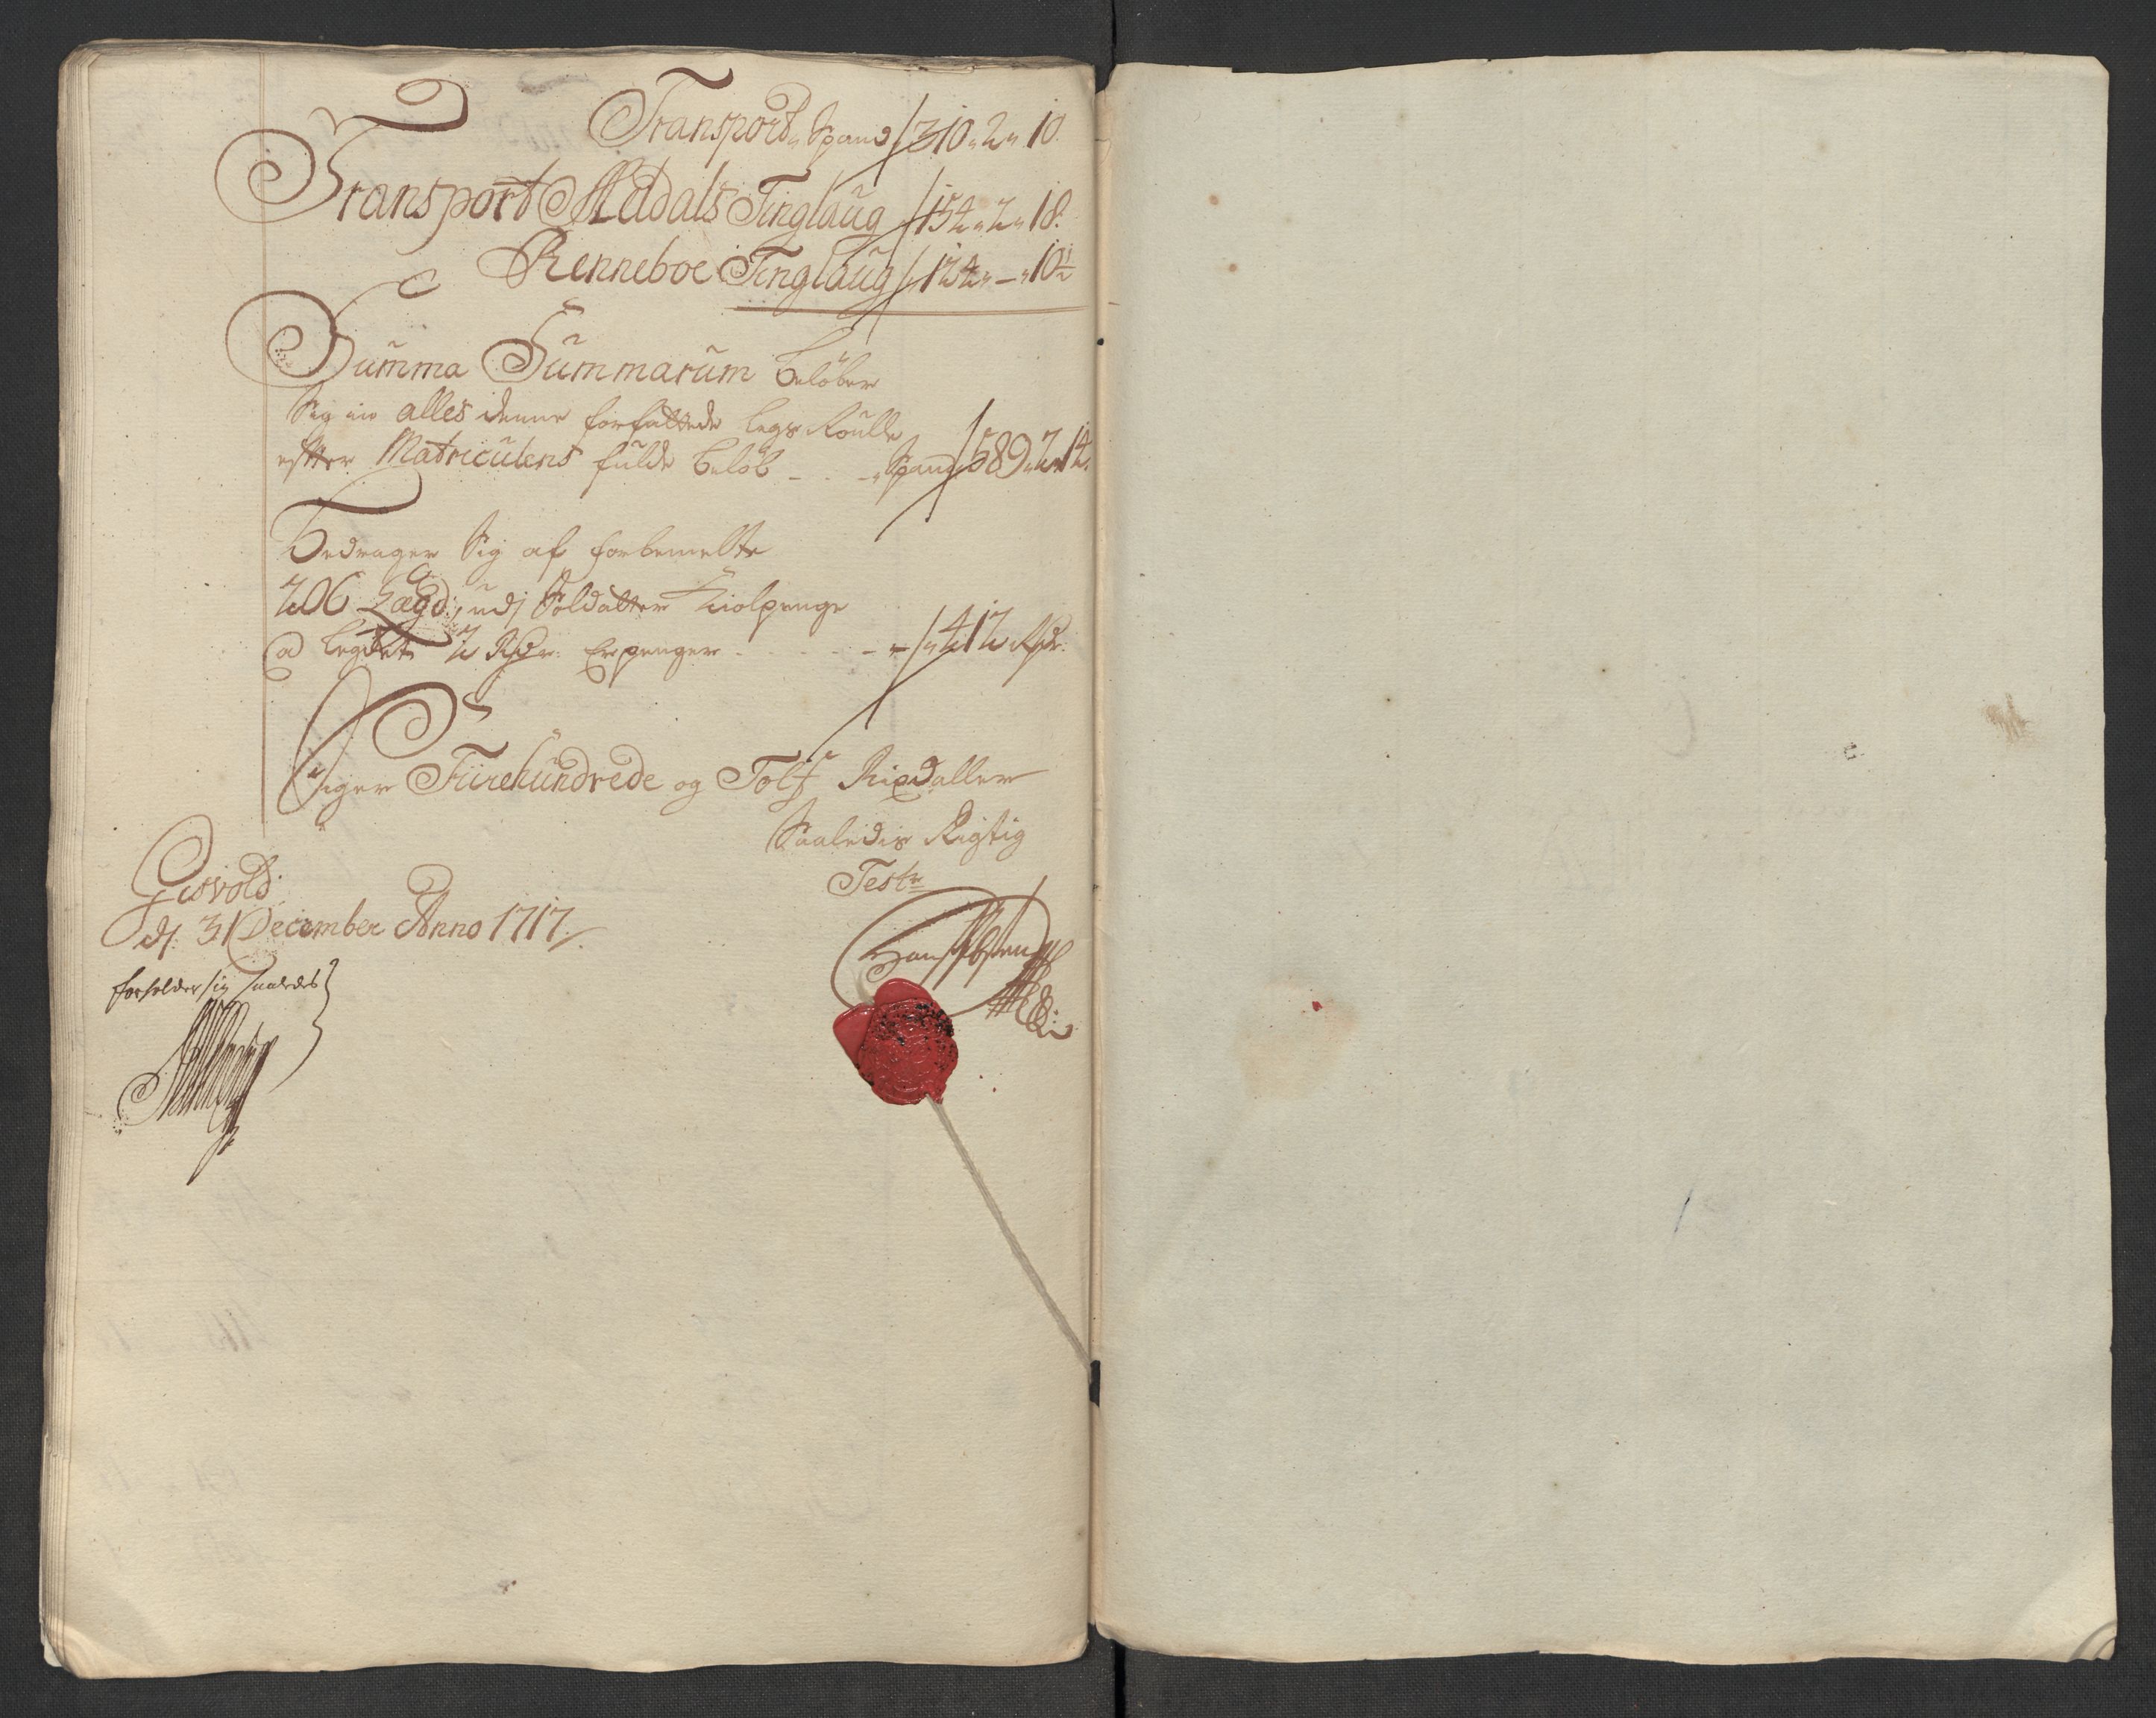 Transport „ Spand 310 „ 2 „ 10.
Transport Meldals Tinglaug 154 „ 2 „ 18.
Renneboe Tinglaug 124 „ — „ 10½
Summa Summarum beløber
Sig in alles denne forfattede legs Roulle
efter Matriculens fulde beløb - - - Spand 589 „ 2 „ 14.
Bedrager Sig af forbemelte
206 Lægd:, udj Soldatter Kiolpenge
a legdet 2 Rdr. Er penger - - - - - 412 Rdr.
Siger Fiirehundrede og Tolf Rixdaller
Saaledis Rigtig
Test:
Giisvold
dj. 31 December Anno 1717.
forholder sig saaledes